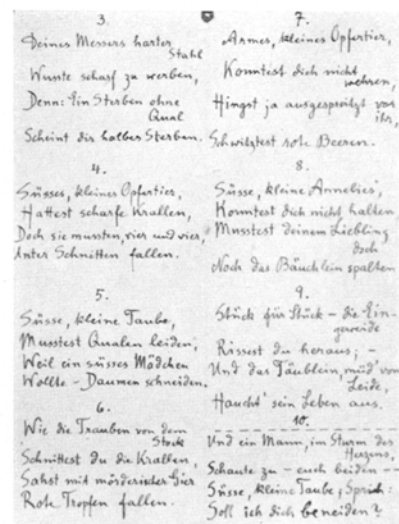 3.
Deines Messers harter
Stahl
Wusste scharf zu werben,
Denn: Ein Sterben ohne
Qual
Scheint dir halbes Sterben.
4.
Süsses, kleines Opfertier,
Hattest scharfe Krallen,
Doch sie mussten, vier und vier,
Unter Schnitten fallen.
5.
Süsse, kleine Taube,
Musstest Qualen leiden,
Weil ein süsses Mädchen
Wollte - Daumen schneiden.
6.
Wie die Trauben von dem
Stocke
Schnittest du die Krallen,
Sahst mit mörderischer Gier
Rote Tropfen fallen.
7.
Armes, kleines Opfertier,
Konntest dich nicht
wehren,
Hingst ja ausgespreitzt vor
ihr,
Schwitztest rote Beeren.
8.
Süsse, kleine Annelies',
Konntest dich nicht halten,
Musstest deinem Liebling
doch
Noch das Bäuchlein spalten
9.
Stück für Stück - die Ein-
geweide
Rissest du heraus; -
Und das Täublein, müd' von
Leide,
Haucht' sein Leben aus.
10.
Und ein Mann, im Sturm des
Herzens,
Schaute zu - euch beiden --
Süsse, kleine Taube, Sprich:
Soll ich dich beneiden?